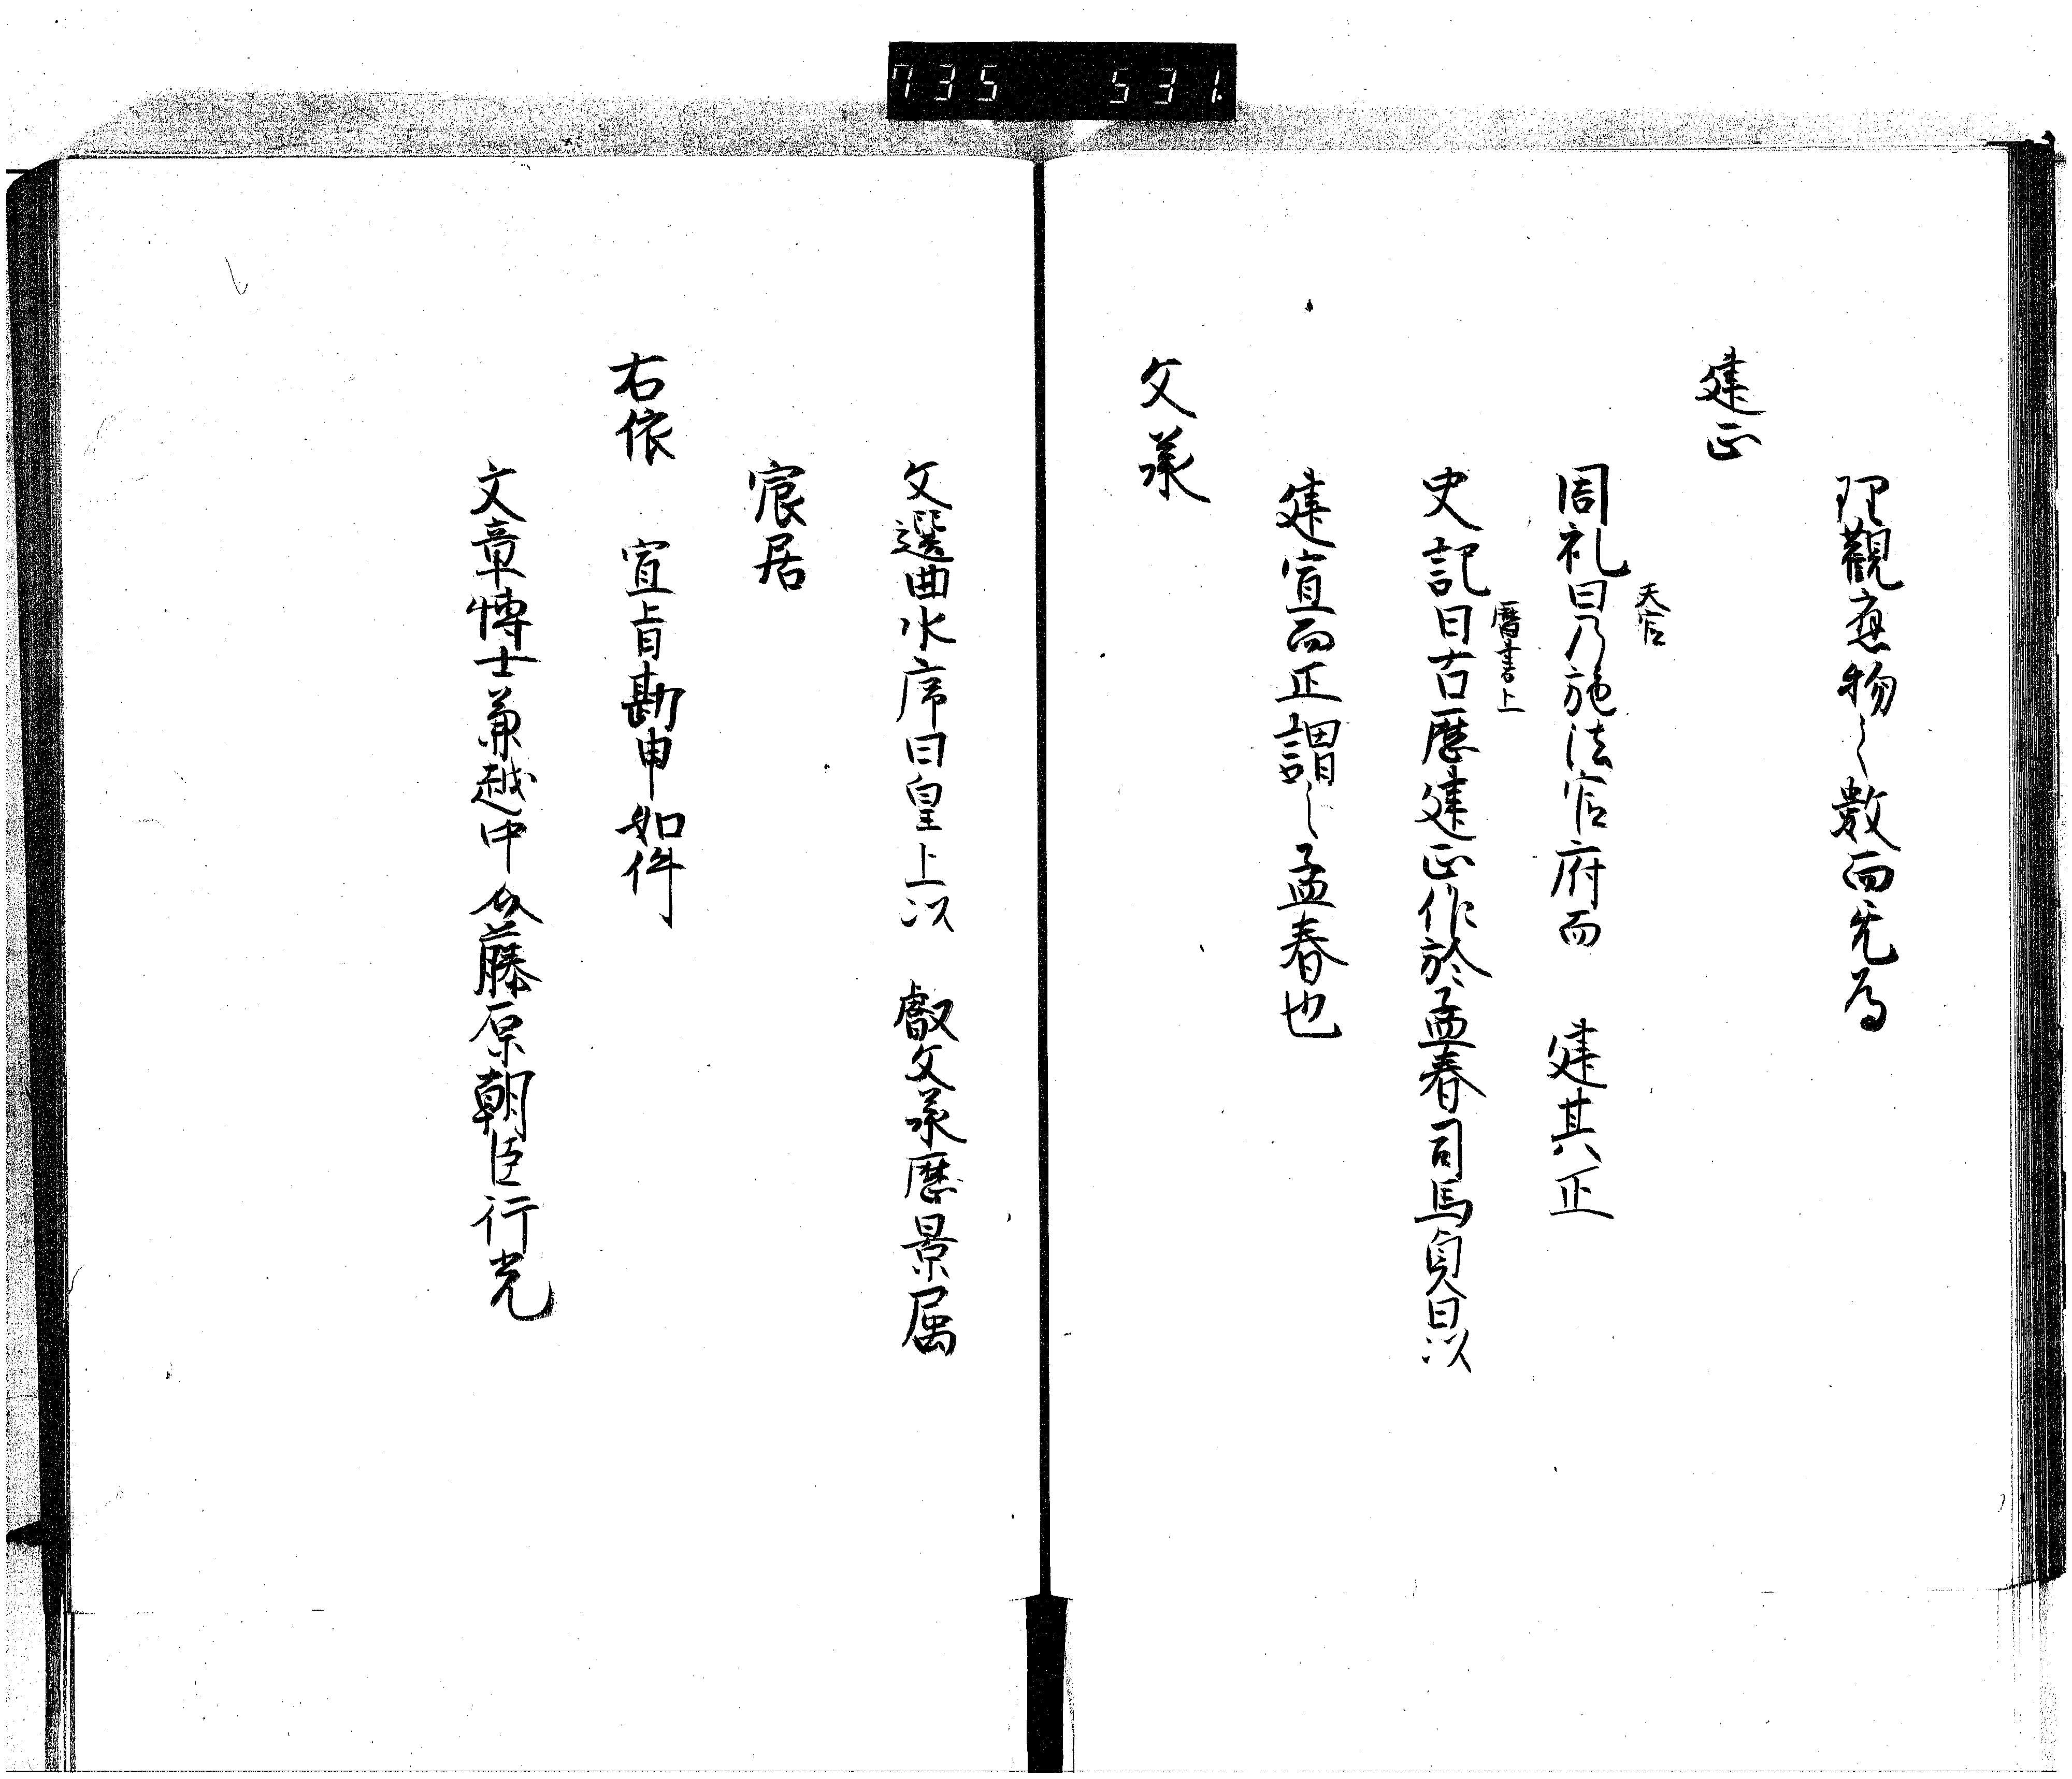 735 531.
理觀應物之數而无為
建正
天官
周礼曰乃施法官府而 建其正
暦書上
史記曰古歴建正作於孟春司馬貞曰以
建寅而正謂之孟春也
文承
文選曲水序曰皇上以 叡文承歴景属
宸居
右依 宣旨勘申如件
文章博士兼越中介藤原朝臣行光